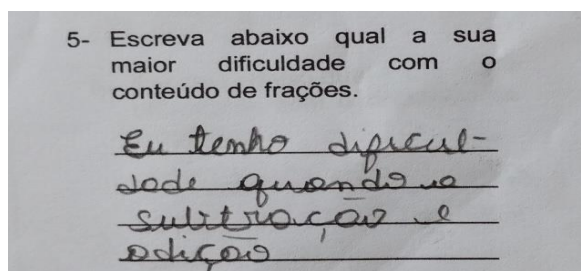 5- Escreva abaixo qual a sua
maior dificuldade com o
conteúdo de frações.
Eu tenho dificul-
dade quando va
sulitração e
adição